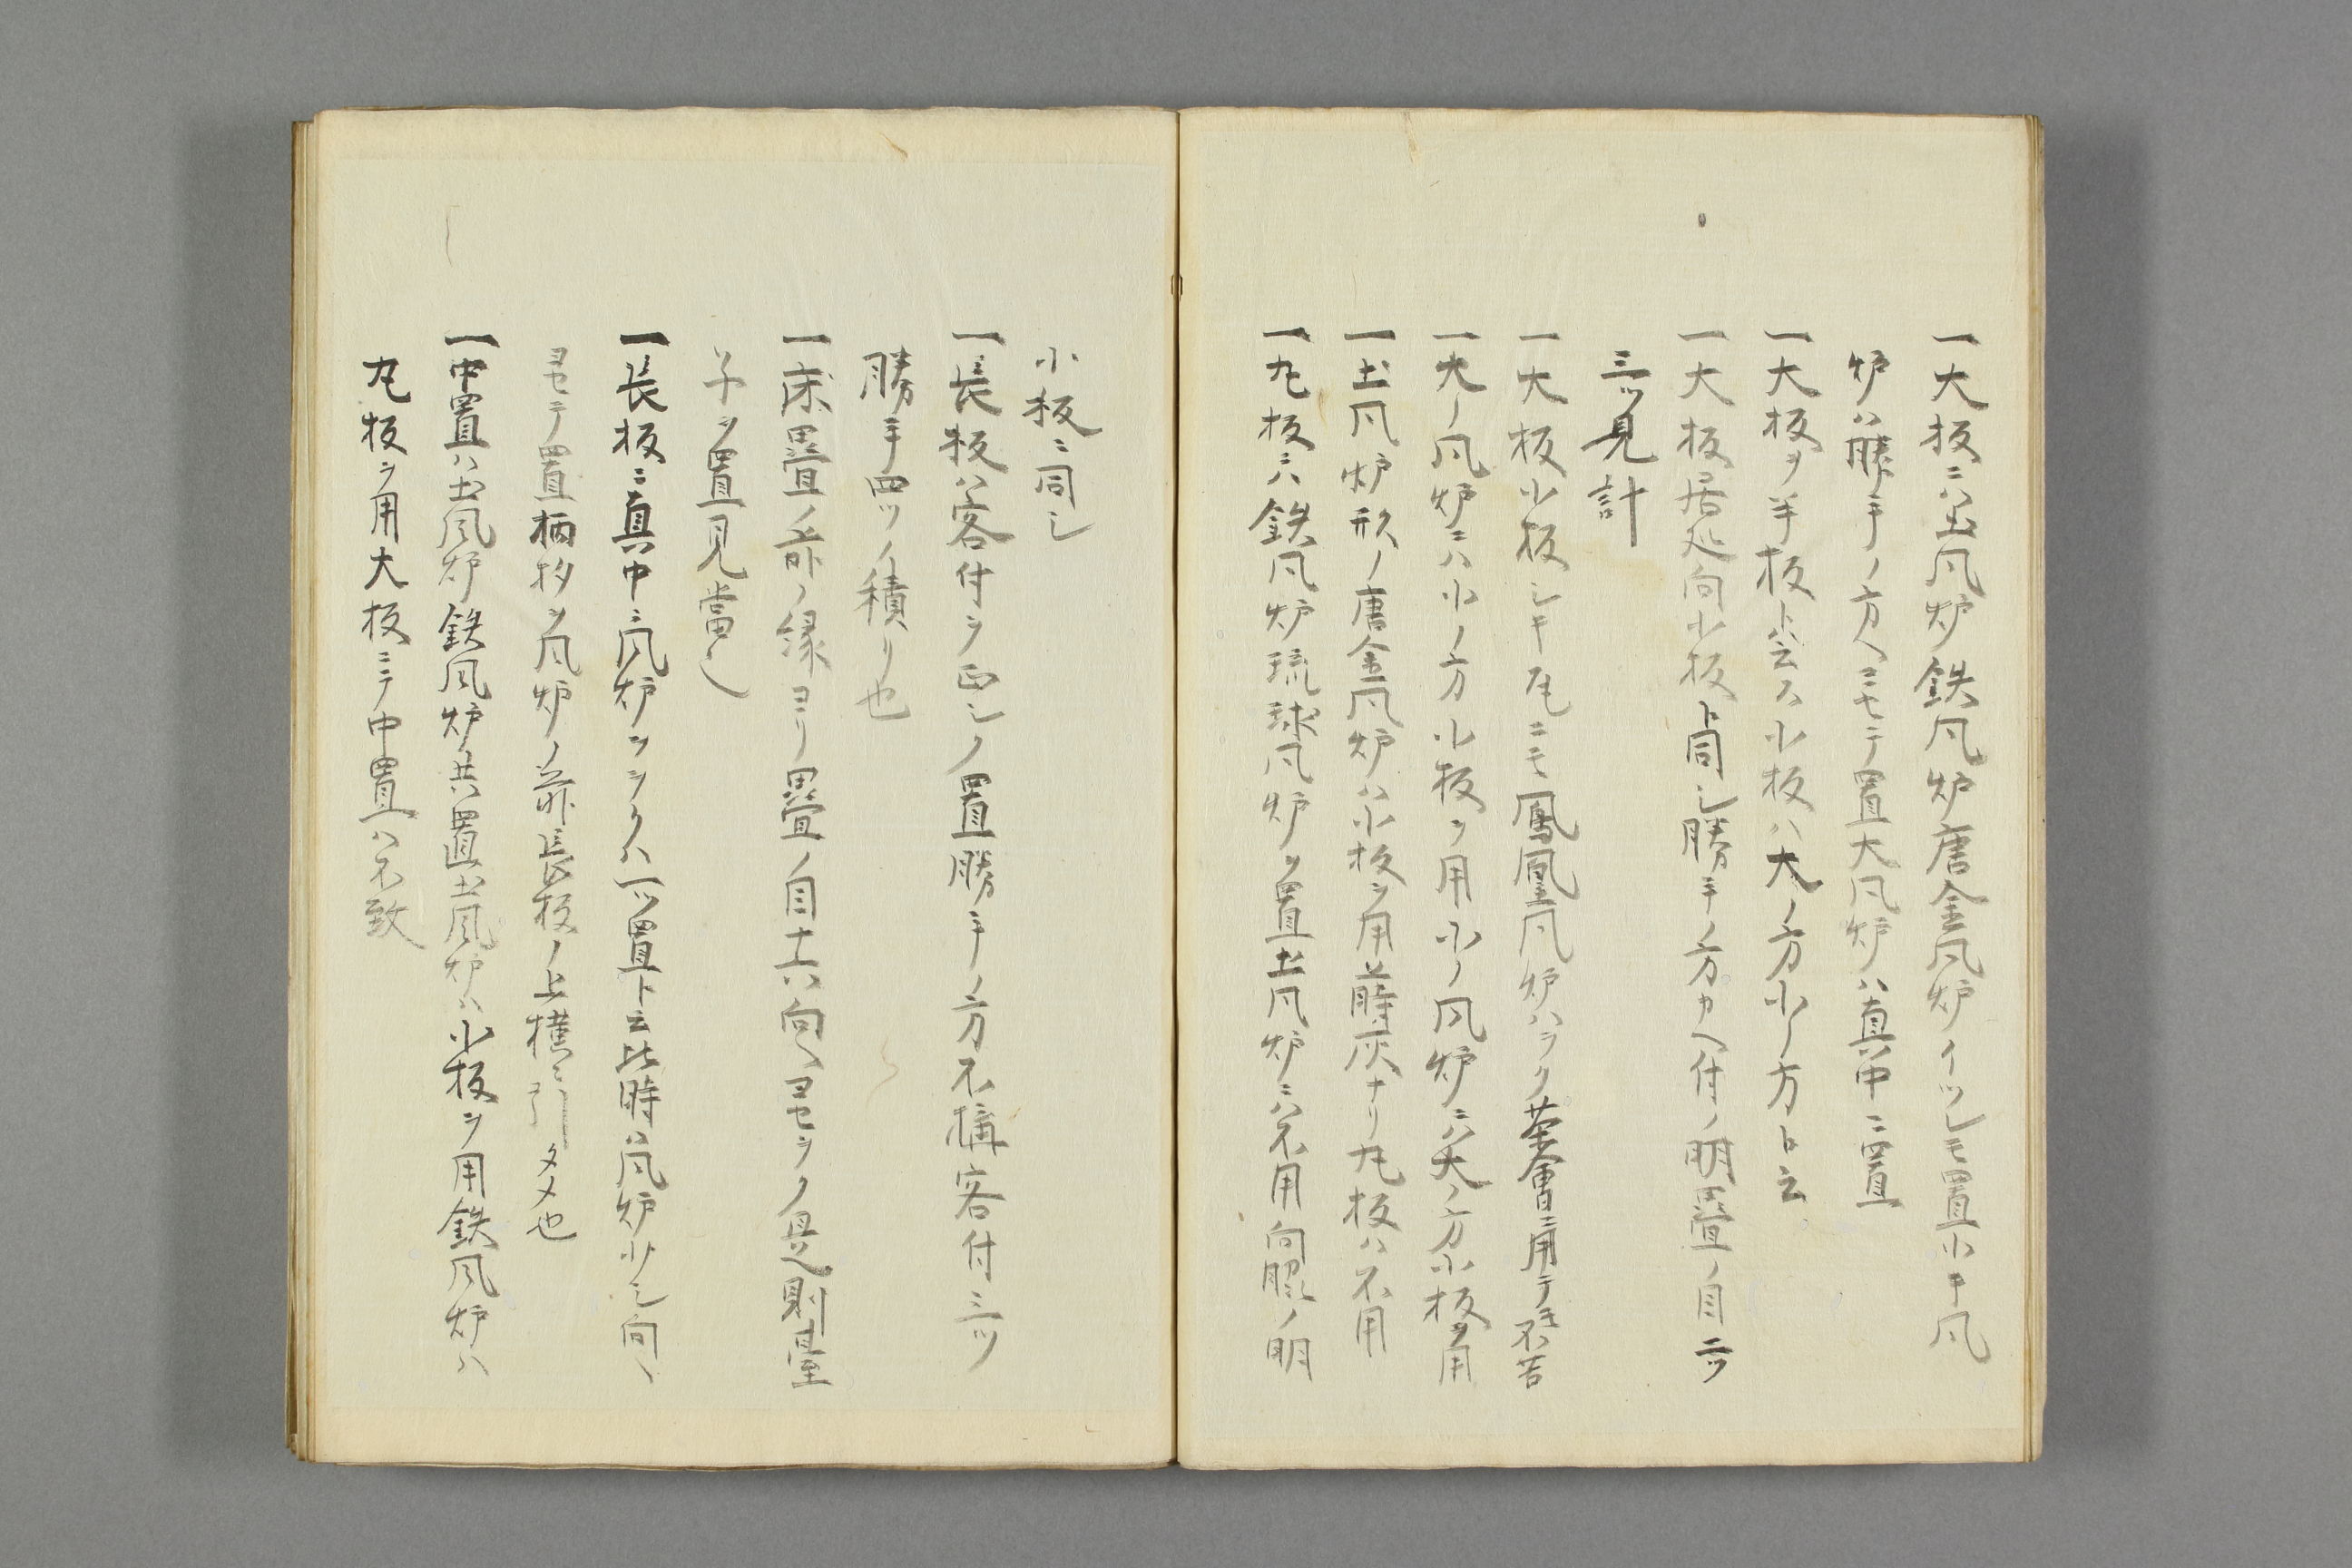 一大板ニハ土風炉鉄風炉唐金風炉イツレモ置小キ風
炉ハ勝手ノ方ヘヨセテ置大風炉ハ真中ニ置
一大板ヲ半板ト云ス小板ハ大ノ方小ノ方ト云
一大板居処向小板ト同シ勝手ノ方カヘ付ノ明畳ノ目二ツ
三ツ見計
一大板小板シキ瓦ニモ鳳凰風炉ハラク茶會ニ用テモ不苦
一大ノ風炉ニハ小ノ方小板ヲ用小ノ風炉ニハ大ノ方小板ヲ用
一土風炉形ノ唐金風炉ハ小板ヲ用蒔灰ナリ丸板ハ不用
一丸板ニハ鉄風炉琉球風炉ヲ置土風炉ニハ不用向脇ノ明
小板ニ同シ
一長板ハ客付ヲ正シク置勝手ノ方不構客付三ツ
勝手四ツノ積リ也
一床畳ノ前ノ縁ヨリ畳ノ目十六向ヘヨセヲク是則臺
子ヲ置見當也
一長板ニ真中ニ風炉ヲヲクハ一ツ置ト云此時ハ風炉少シ向ヘ
ヨセテ置柄杓ヲ風炉ノ前長板ノ上横ニ引タメ也
一中置ハ土風炉鉄風炉共ニ置土風炉ハ小板ヲ用鉄風炉ハ
丸板ヲ用大板ニテ中置ハ不致